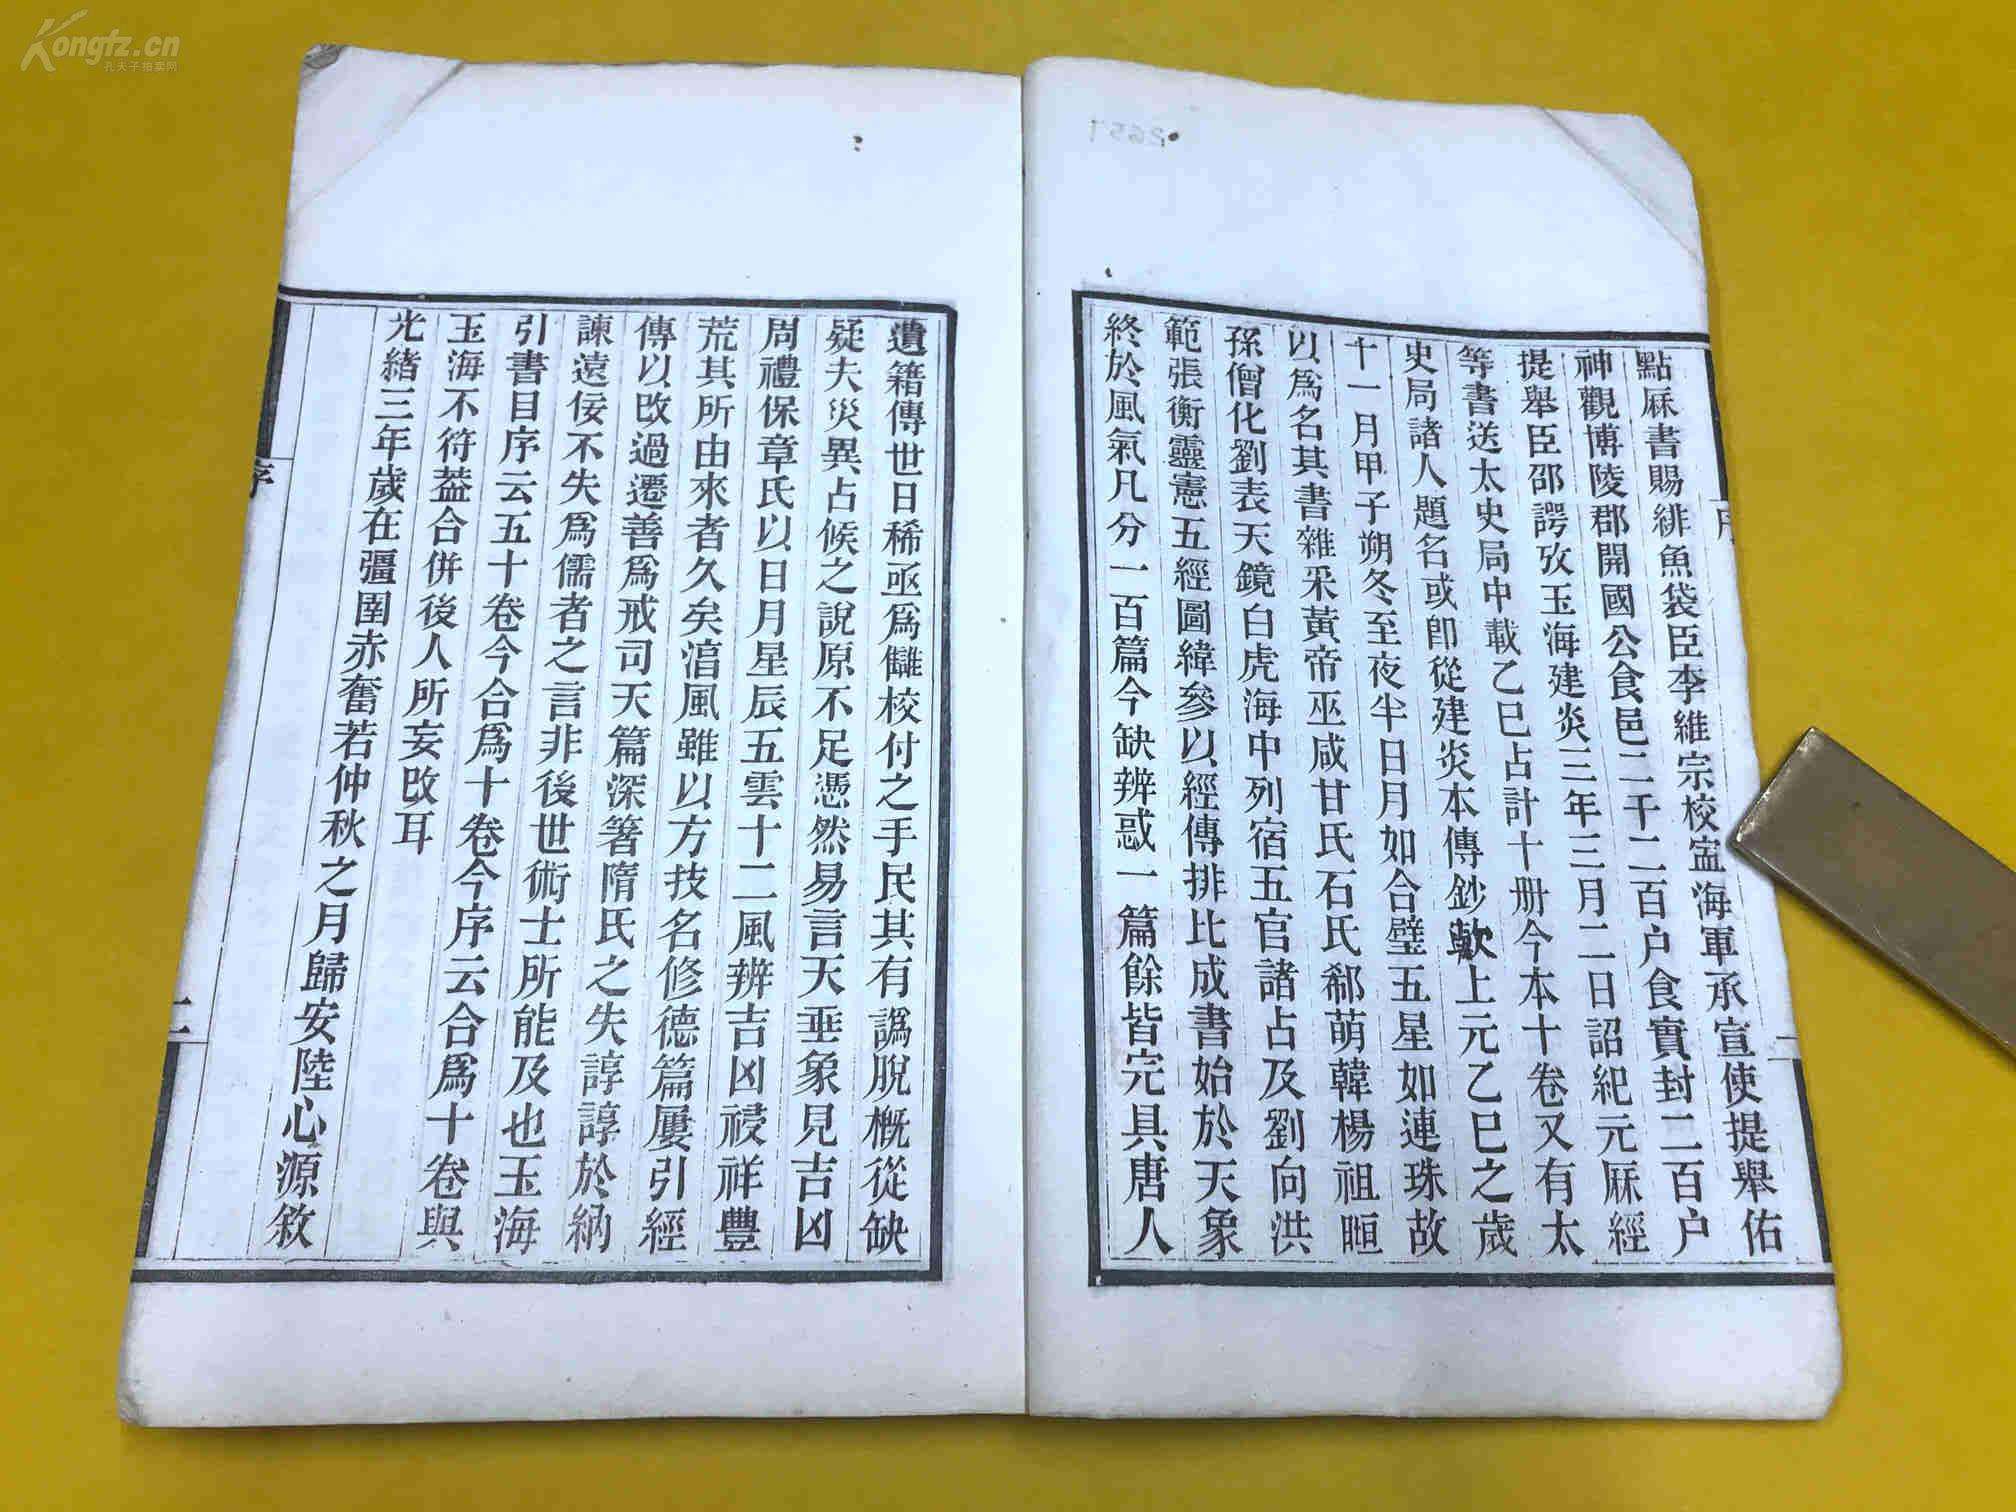 Kongfz.cn
孔夫子拍卖网
2651
點厤書賜緋魚袋臣李維宗校寍海軍承宣使提舉佑
神觀博陵郡開國公食邑二千二百户食實封二百户
提舉臣邵諤攷玉海建炎三年三月二日詔紀元厤經
等書送太史局中載乙巳占計十册今本十卷又有太
史局諸人題名或卽從建炎本傳鈔歟上元乙巳之歲
十一月甲子朔冬至夜半日月如合璧五星如連珠故
以爲名其書雜采黃帝巫咸甘氏石氏郗萌韓楊祖暅
孫僧化劉表天鏡白虎海中列宿五官諸占及劉向洪
範張衡靈憲五經圖緯參以經傳排比成書始於天象
終於風氣凡分一百篇今缺辨惑一篇餘皆完具唐人
序
遺籍傳世日稀亟爲讎校付之手民其有譌脫概從缺
疑夫災異占候之說原不足憑然易言天垂象見吉凶
周禮保章氏以日月星辰五雲十二風辨吉凶祲祥豐
荒其所由來者久矣淯風雖以方技名修德篇屢引經
傳以改過遷善爲戒司天篇深箸隋氏之失諄諄於納
諫遠佞不失爲儒者之言非後世術士所能及也玉海
引書目序云五十卷今合爲十卷今序云合爲十卷與
玉海不符葢合併後人所妄改耳
光緒三年歲在彊圉赤奮若仲秋之月歸安陸心源敘
序
二